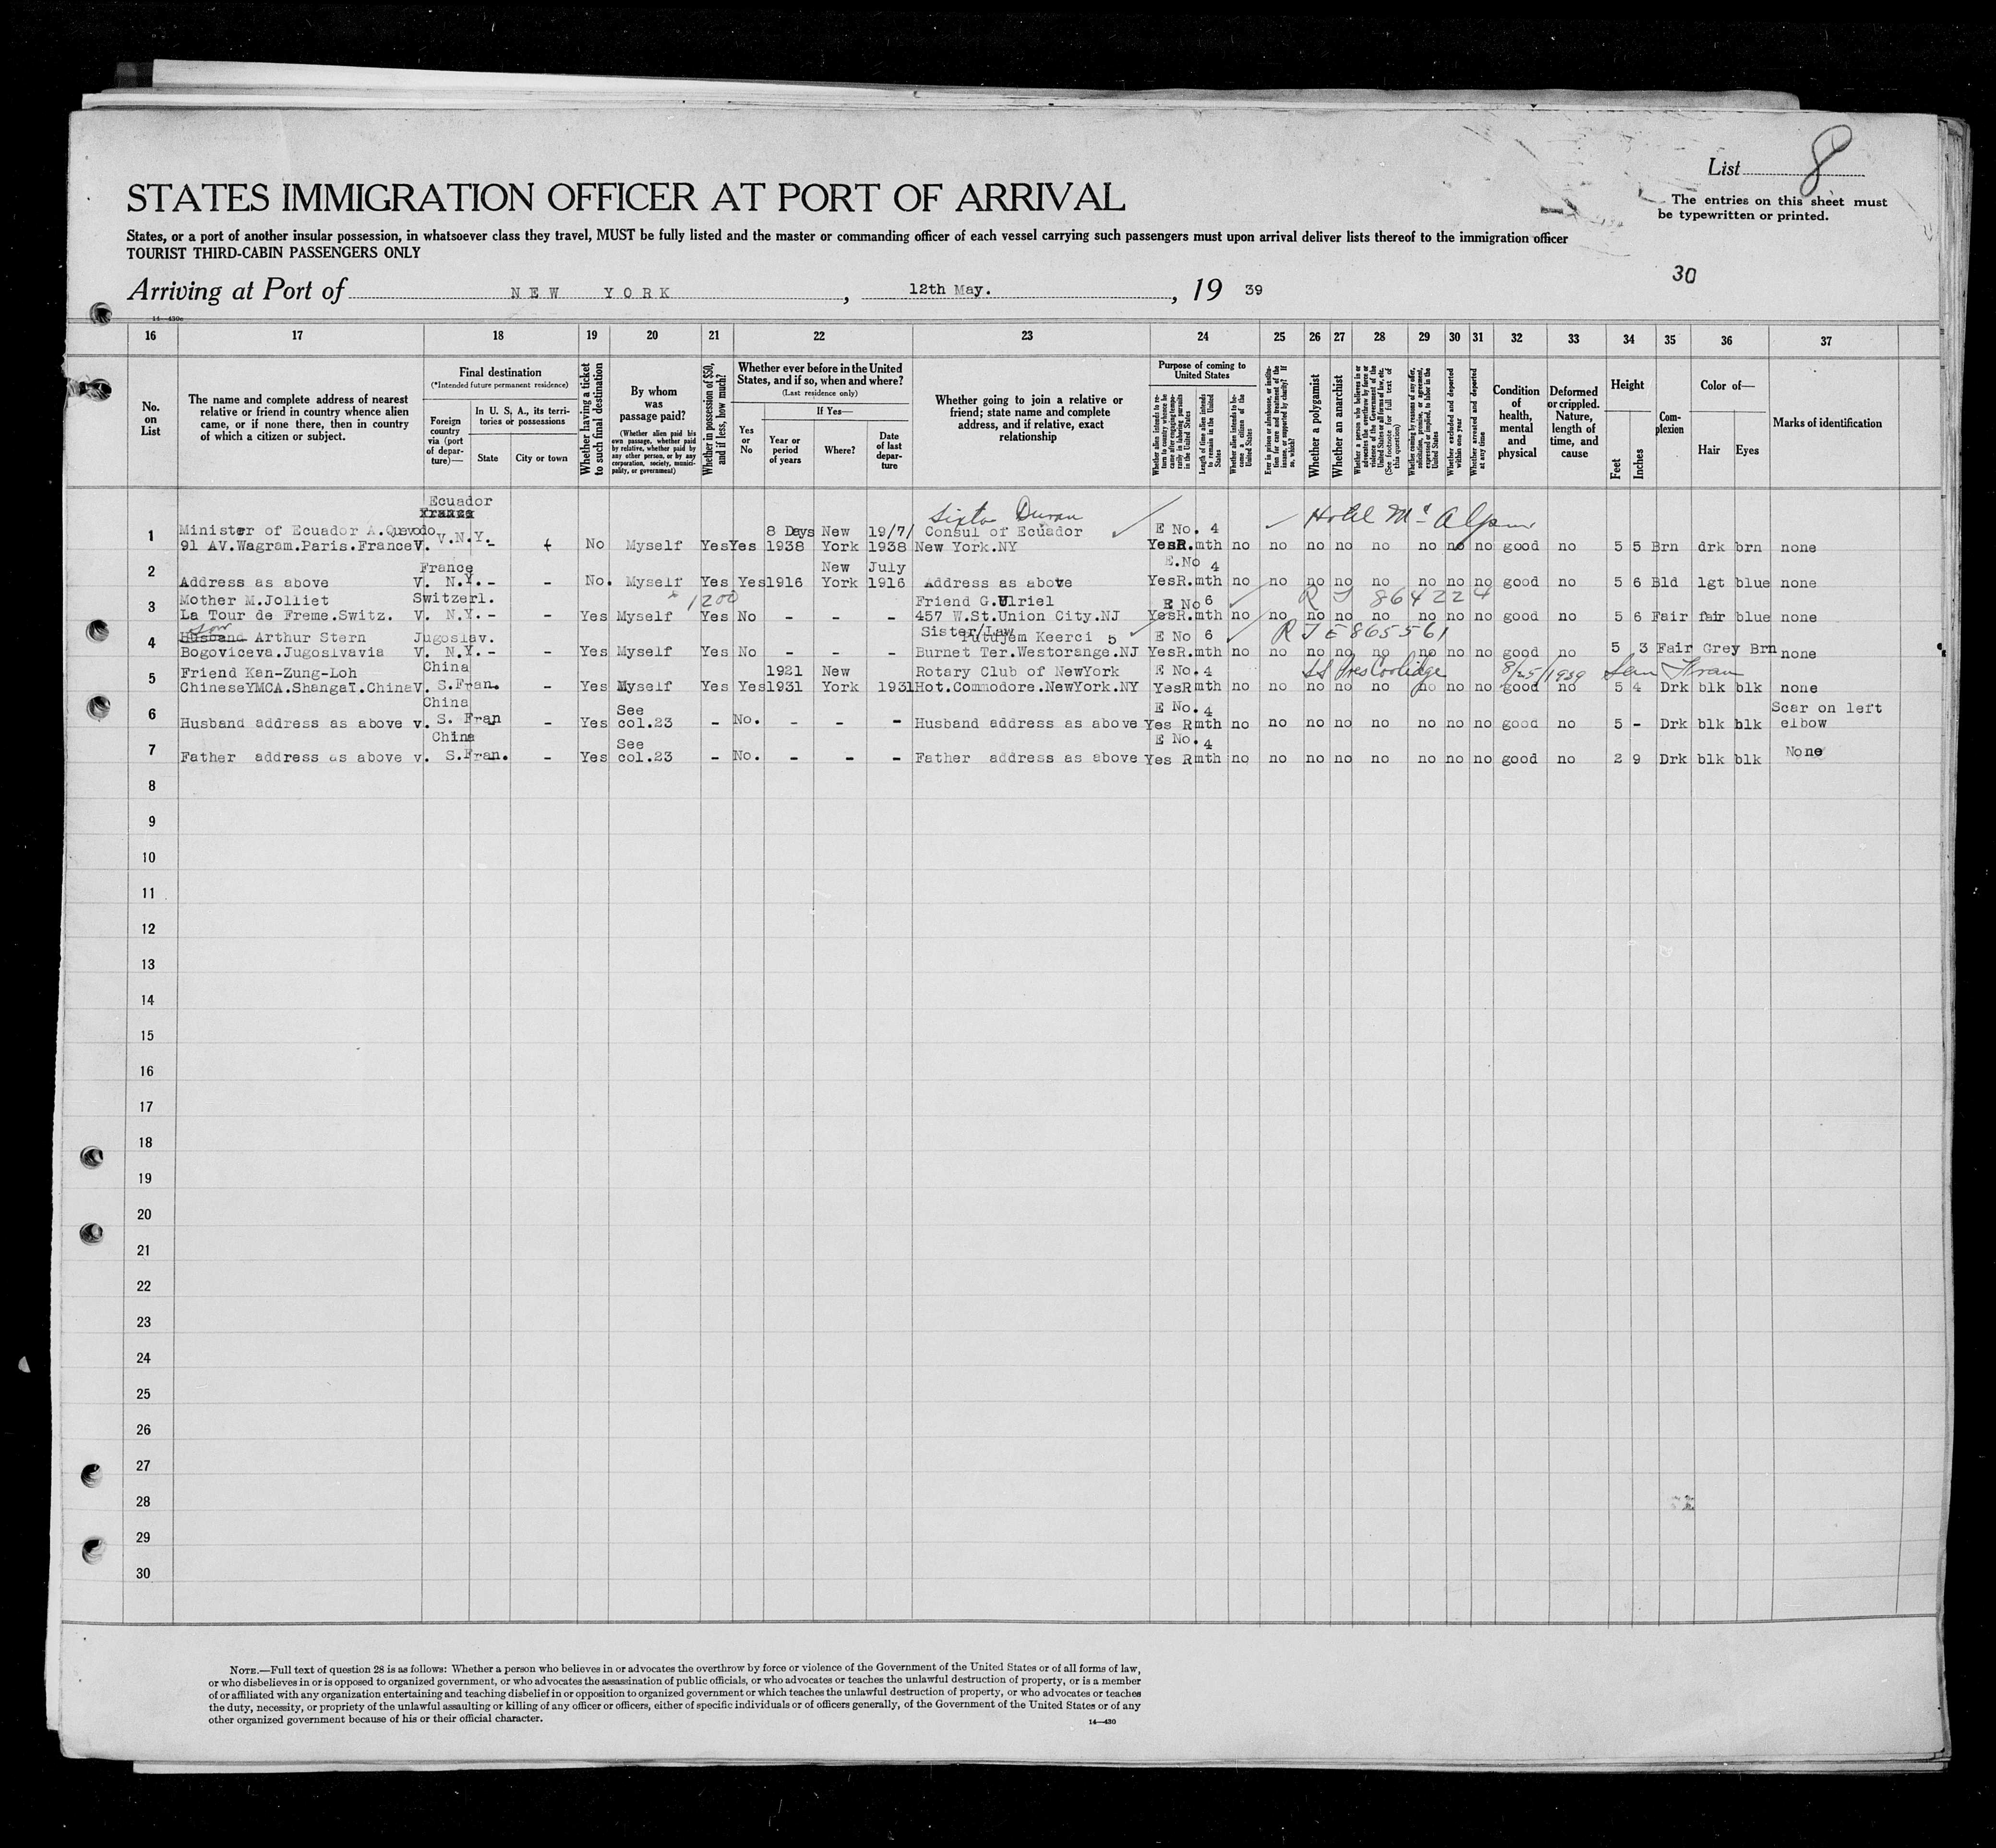 List 8
STATES IMMIGRATION OFFICER AT PORT OF ARRIVAL
The entries on this sheet must
be typewritten or printed.
States, or a port of another insular possession, in whatsoever class they travel, MUST be fully listed and the master or commanding officer of each vessel carrying such passengers must upon arrival deliver lists thereof to the immigration officer
TOURIST THIRD-CABIN PASSENGERS ONLY
30
Arriving at Port of NEW YORK, 12th May., 19 39
16 17 18 19 20 21 22 23 24 25 26 27 28 29 30 31 32 33 34 35 36 37
No. on List
The name and complete address of nearest relative or friend in country whence alien came, or if none there, then in country of which a citizen or subject.
Final destination
(*Intended future permanent residence)
Foreign country via (port of departure)—
In U. S. A., its territories or possessions
State
City or town
Whether having a ticket to such final destination
By whom was passage paid?
(Whether alien paid his own passage, whether paid by relative, whether paid by any other person, or by any corporation, society, municipality, or government)
Whether in possession of $50, and if less, how much?
Whether ever before in the United States, and if so, when and where?
(Last residence only)
Yes or No
If Yes—
Year or period of years
Where?
Date of last departure
Whether going to join a relative or friend; state name and complete address, and if relative, exact relationship
Purpose of coming to United States
Whether alien intends to return to country whence he came after engaging temporarily in laboring pursuits in the United States
Length of time alien intends to remain in the United States
Whether alien intends to become a citizen of the United States
Ever in prison or almshouse, or institution for care and treatment of the insane, or supported by charity? If so, which?
Whether a polygamist
Whether an anarchist
Whether a person who believes in or advocates the overthrow by force or violence of the Government of the United States or all forms of law, etc. (See footnote for full text of this question)
Whether coming by reasons of any offer, solicitation, promise, or agreement, expressed or implied, to labor in the United States
Whether excluded and deported within one year
Whether arrested and deported at any time
Condition of health, mental and physical
Deformed or crippled. Nature, length of time, and cause
Height
Feet
Inches
Complexion
Color of—
Hair
Eyes
Marks of identification
Ecuador
France Sixto Duran
1 Minister of Ecuador A.Quevodo V.N.Y. 8 Days New 19/7/ Consul of Ecuador E No. 4 Hotel
91 AV.Wagram.Paris.France V. - No Myself Yes Yes 1938 York 1938 New York.NY YesR.mth no no no no no no no no good no 5 5 Brn drk brn none
2 France New July E.No 4
Address as above V. N.Y. - - No. Myself Yes Yes 1916 York 1916 Address as above YesR.mth no no no no no no no no good no 5 6 Bld lgt blue none
3 Mother M.Jolliet Switzerl. 1200 Friend G.Ulriel E No 6 864224
La Tour de Freme.Switz. V. N.Y. - - Yes Myself Yes No - - - 457 W.St.Union City.NJ YesR.mth no no no no no no no no good no 5 6 Fair fair blue none
son Sister/Law
4 Husband Arthur Stern Jugoslav. Putujem Keerci 5 E No 6 865561
Bogoviceva.Jugoslvavia V. N.Y. - - Yes Myself Yes No - - - Burnet Ter.Westorange.NJ YesR.mth no no no no no no no no good no 5 3 Fair Grey Brn none
5 Friend Kan-Zung-Loh China 1921 New Rotary Club of NewYork E No. 4 SS Pres Coolidge 8/25/1939 San Fran
ChineseYMCA.ShangaI.China V. S.Fran. - Yes Myself Yes Yes 1931 York 1931 Hot.Commodore.NewYork.NY YesRmth no no no no no no no no good no 5 4 Drk blk blk none
6 China See E No. 4 Scar on left
Husband address as above v. S. Fran - Yes col.23 - No. - - - Husband address as above Yes Rmth no no no no no no no no good no 5 - Drk blk blk elbow
7 China See E No. 4 None
Father address as above v. S.Fran. - Yes col.23 - No. - - - Father address as above Yes Rmth no no no no no no no no good no 2 9 Drk blk blk
8
9
10
11
12
13
14
15
16
17
18
19
20
21
22
23
24
25
26
27
28
29
30
NOTE.—Full text of question 28 is as follows: Whether a person who believes in or advocates the overthrow by force or violence of the Government of the United States or of all forms of law,
or who disbelieves in or is opposed to organized government, or who advocates the assassination of public officials, or who advocates or teaches the unlawful destruction of property, or is a member
of or affiliated with any organization entertaining and teaching disbelief in or opposition to organized government or which teaches the unlawful destruction of property, or who advocates or teaches
the duty, necessity, or propriety of the unlawful assaulting or killing of any officer or officers, either of specific individuals or of officers generally, of the Government of the United States or of any
other organized government because of his or their official character.
14—430